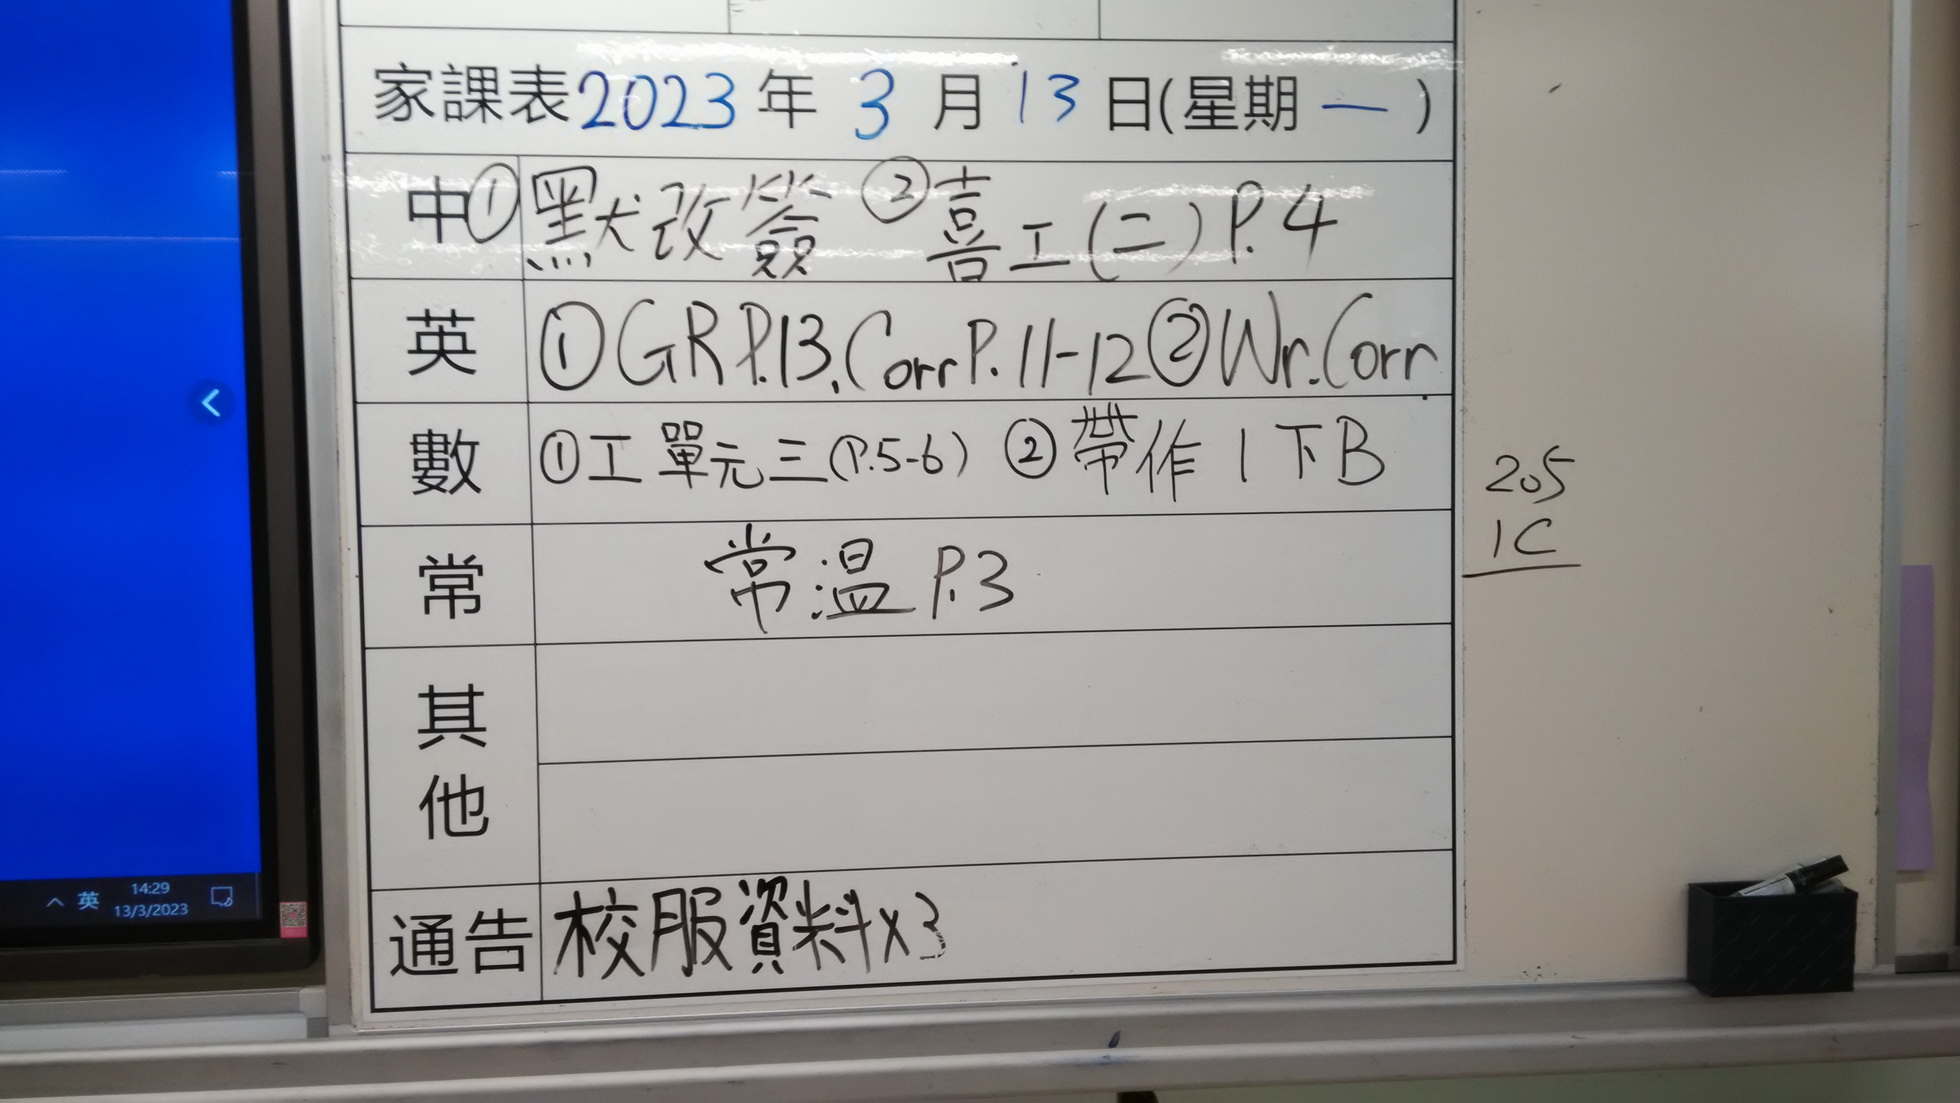 家課表2023年3月13日(星期一)
中①默改簽 ②喜工(二)P.4
英 ①GR P.13, Corr P.11-12 ②Wr. Corr
數 ①工 單元三(P.5-6) ②帶作 1下B
常 常温 P.3
其他
通告 校服資料x3
205
1C
英
14:29
13/3/2023